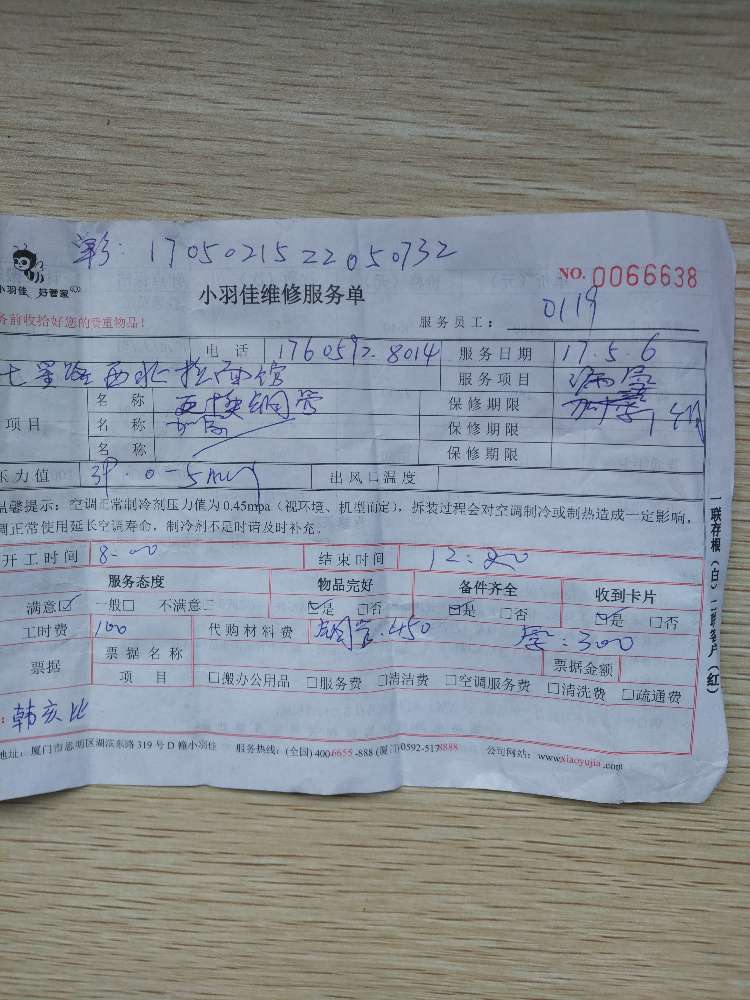 单号：1705021522050732
小羽佳 好管家
NO. 0066638
小羽佳维修服务单
务前收拾好您的贵重物品！
服务员工： 0119
电 话 1760592.8014 服务日期 17.5.6
七星路西北拉面馆 服务项目
名 称 铜管 保修期限
项目 名 称 保修期限
名 称 保修期限
压力值 出风口温度
温馨提示：空调正常制冷剂压力值为0.45mpa（视环境、机型而定），拆装过程会对空调制冷或制热造成一定影响，
调正常使用延长空调寿命，制冷剂不足时请及时补充。
开工时间 8:00 结束时间 12:20
服务态度 物品完好 备件齐全 收到卡片
满意☑ 一般□ 不满意□ ☑是 □否 ☑是 □否 ☑是 □否
工时费 100 代购材料费 铜管.450 :300
票据 票据名称 票据金额
项 目 □搬办公用品 □服务费 □清洁费 □空调服务费 □清洗费 □疏通费
地址：厦门市思明区湖滨东路319号D幢小羽佳 服务热线：(全国)4006655-888 (厦门)0592-5178888 公司网站：www.xiaoyujia.com
一联存根（白）二联客户（红）